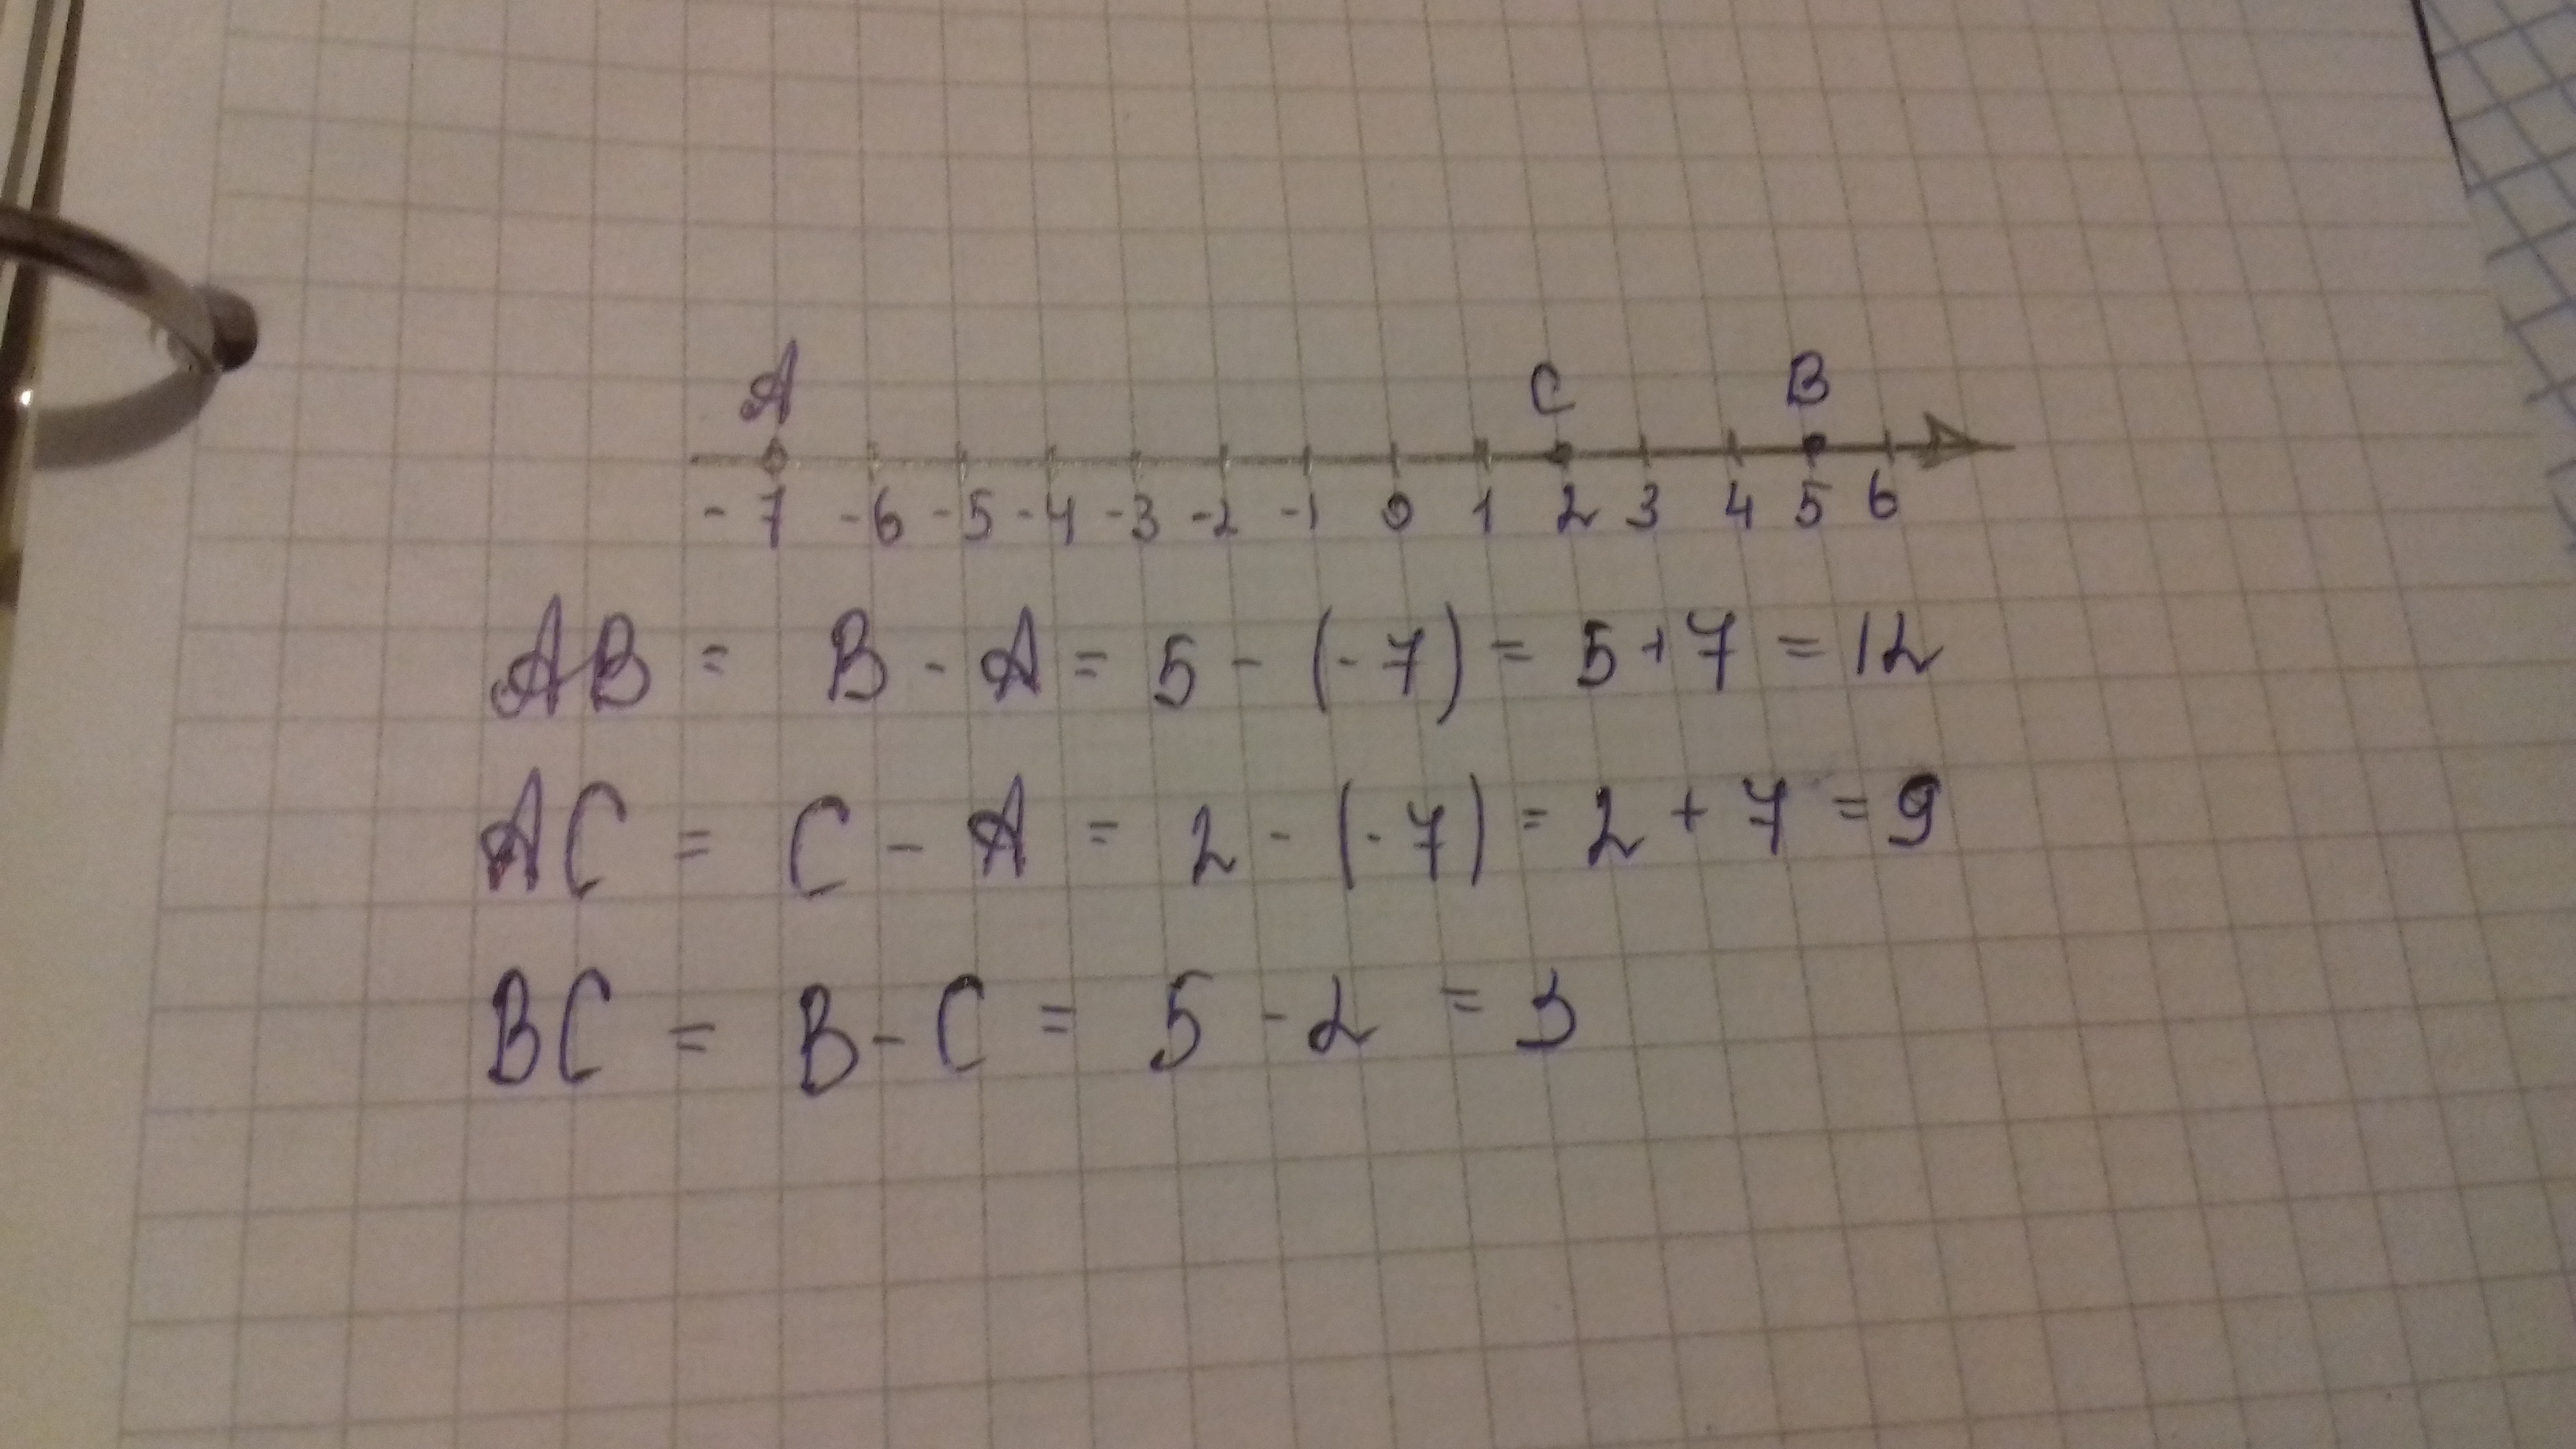 A C B
-7 -6 -5 -4 -3 -2 -1 0 1 2 3 4 5 6
AB = B - A = 5 - (-7) = 5 + 7 = 12
AC = C - A = 2 - (-7) = 2 + 7 = 9
BC = B - C = 5 - 2 = 3